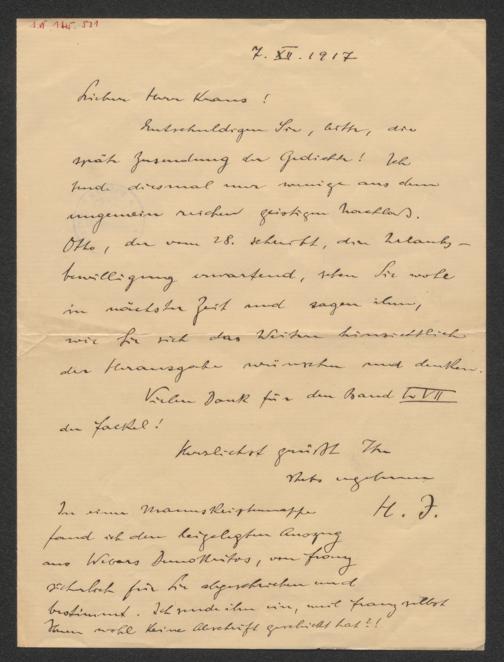 I.N. 165.531
7. XII. 1917
Lieber Herr Kraus!
Entschuldigen Sie, bitte, die
späte Zusendung der Gedichte! Ich
sende diesmal nur wenige aus dem
ungemein reichen geistigen Nachlaß.
Otto, der vom 28. schreibt, die Urlaubs-
bewilligung erwartend, sehen Sie wohl
in nächster Zeit und sagen ihm,
wie Sie sich das Weitere hinsichtlich
der Herausgabe wünschen und denken.
Vielen Dank für den Band
der Fackel!
Herzlichst grüßt Ihr
stets ergebener
H. J.
In einer Manuskriptenmappe
fand ich den beigelegten Auszug
aus Webers Demokritos, von Franz
sicherlich für Sie abgeschrieben und
bestimmt. Ich sende ihn ein, weil Franz selbst
Ihnen wohl keine Abschrift geschickt hat?!